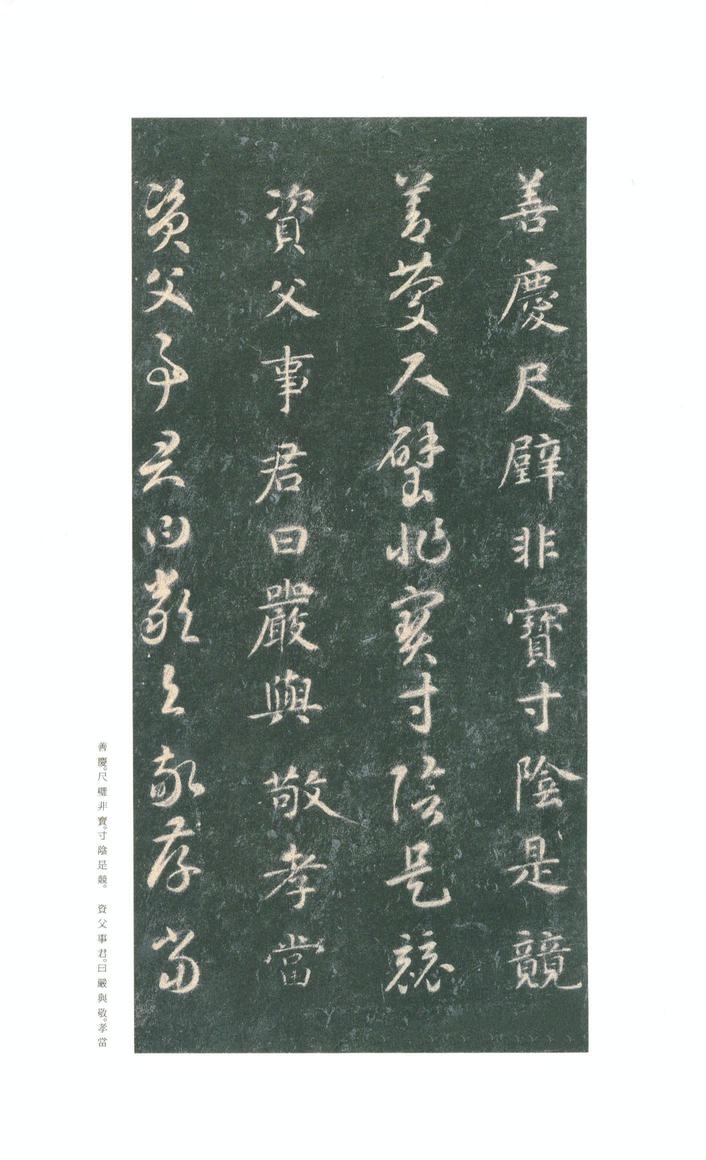 善慶尺璧非寶寸陰是競
善慶尺璧非寶寸陰是競
資父事君曰嚴與敬孝當
資父事君曰嚴與敬孝當
善慶。尺璧非寶。寸陰是競。 資父事君。曰嚴與敬。孝當